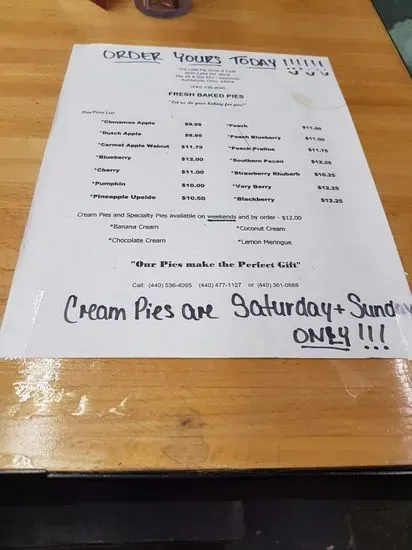 ORDER YOURS TODAY !!!!!!
The Little Pie Shop & Café
Ashtabula, Ohio 44004
(440) 536-4095
FRESH BAKED PIES
"Let us do your baking for you!"
Pies/Price List
*Cinnamon Apple $9.95 *Peach $11.00
*Dutch Apple $9.95 *Peach Blueberry $11.00
*Carmel Apple Walnut $11.75 *Peach/Praline $11.75
*Blueberry $12.00 *Southern Pecan $12.25
*Cherry $11.00 *Strawberry Rhubarb $10.25
*Pumpkin $10.00 *Very Berry $12.25
*Pineapple Upside $10.50 *Blackberry $12.25
Cream Pies and Specialty Pies available on weekends and by order - $12.00
*Banana Cream *Coconut Cream
*Chocolate Cream *Lemon Meringue
"Our Pies make the Perfect Gift"
Call: (440) 536-4095 (440) 477-1127 or (440) 361-0888
Cream Pies are Saturday + Sunday
ONLY !!!